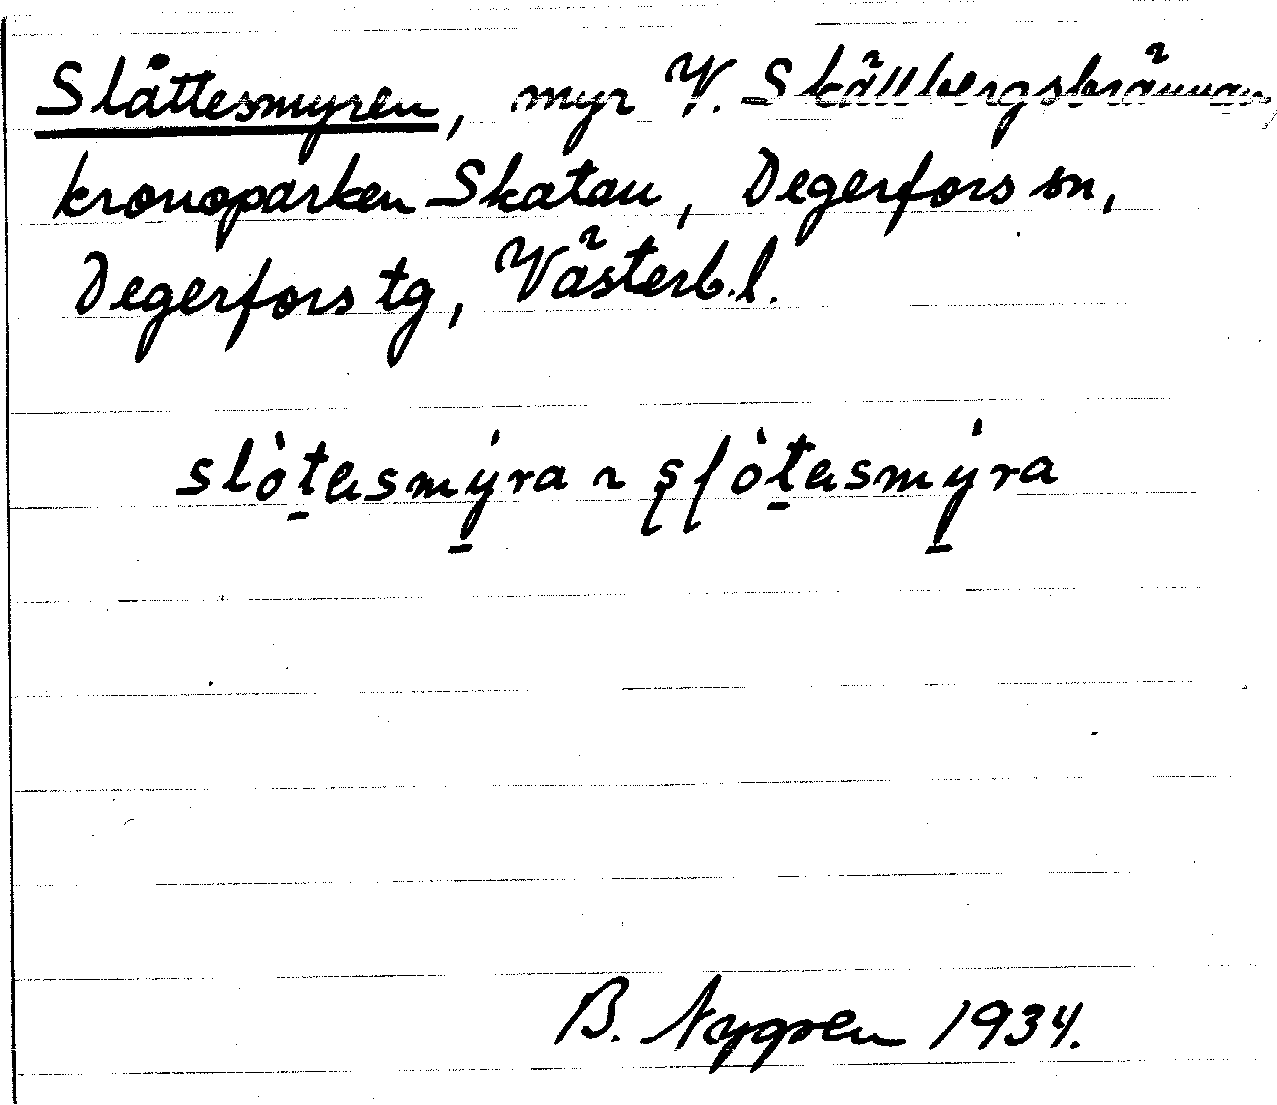 Slåttesmyren, myr V. Skällbergsbrännan,
kronoparken Skatan, Degerfors sn,
Degerfors tg, Västerb.l.
slòt̠esmý̠ra ~ ʂſòt̠esmý̠ra
B. Nygren 1934.